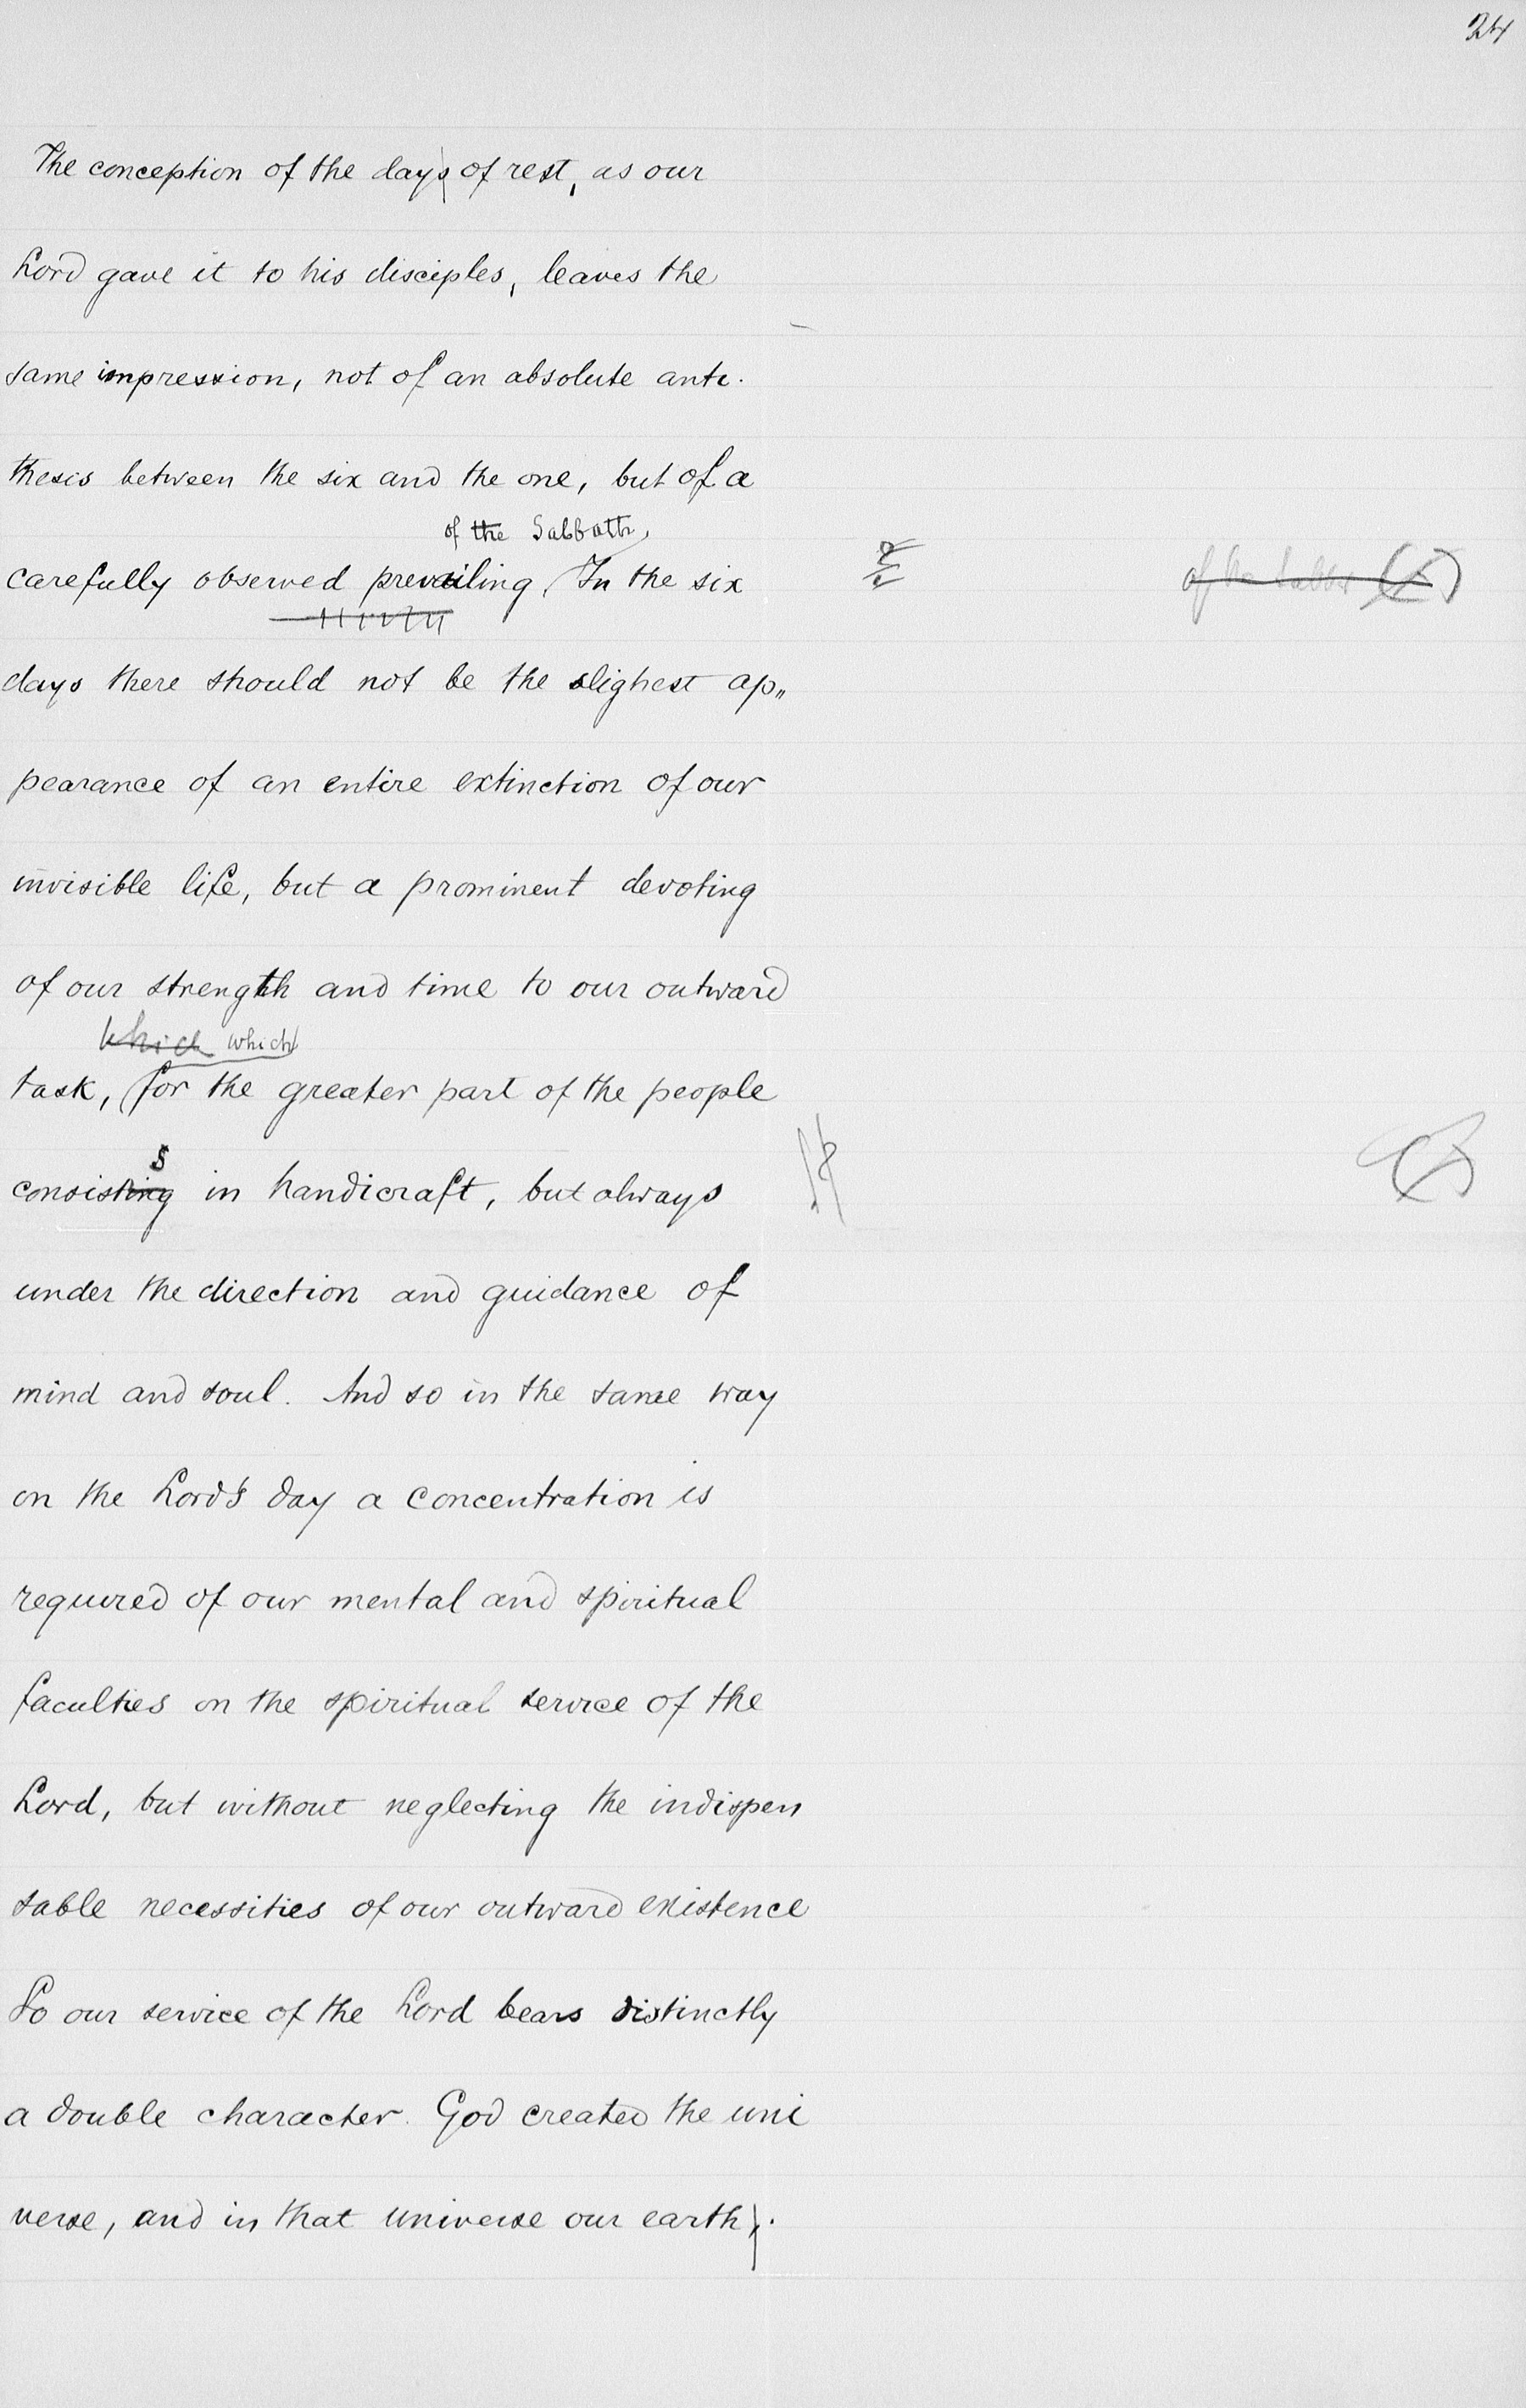 24
The conception of the days of rest, as our
Lord gave it to his disciples, leaves the
same impression, not of an absolute anti-
thesis between the six and the one, but of a
of the Sabbath,
carefully observed prevailing. In the six
days there should not be the slighest ap„
pearance of an entire extinction of our
invisible life, but a prominent devoting
of our strength and time to our outward
which which
task, for the greater part of the people
s
consisting in handicraft, but always
under the direction and guidance of
mind and soul. And so in the same way
on the Lord's day a concentration is
required of our mental and spiritual
faculties on the spiritual service of the
Lord, but without neglecting the indispen
sable necessities of our outward existence
So our service of the Lord bears distinctly
a double character. God created the uni
verse, and in that universe our earth.